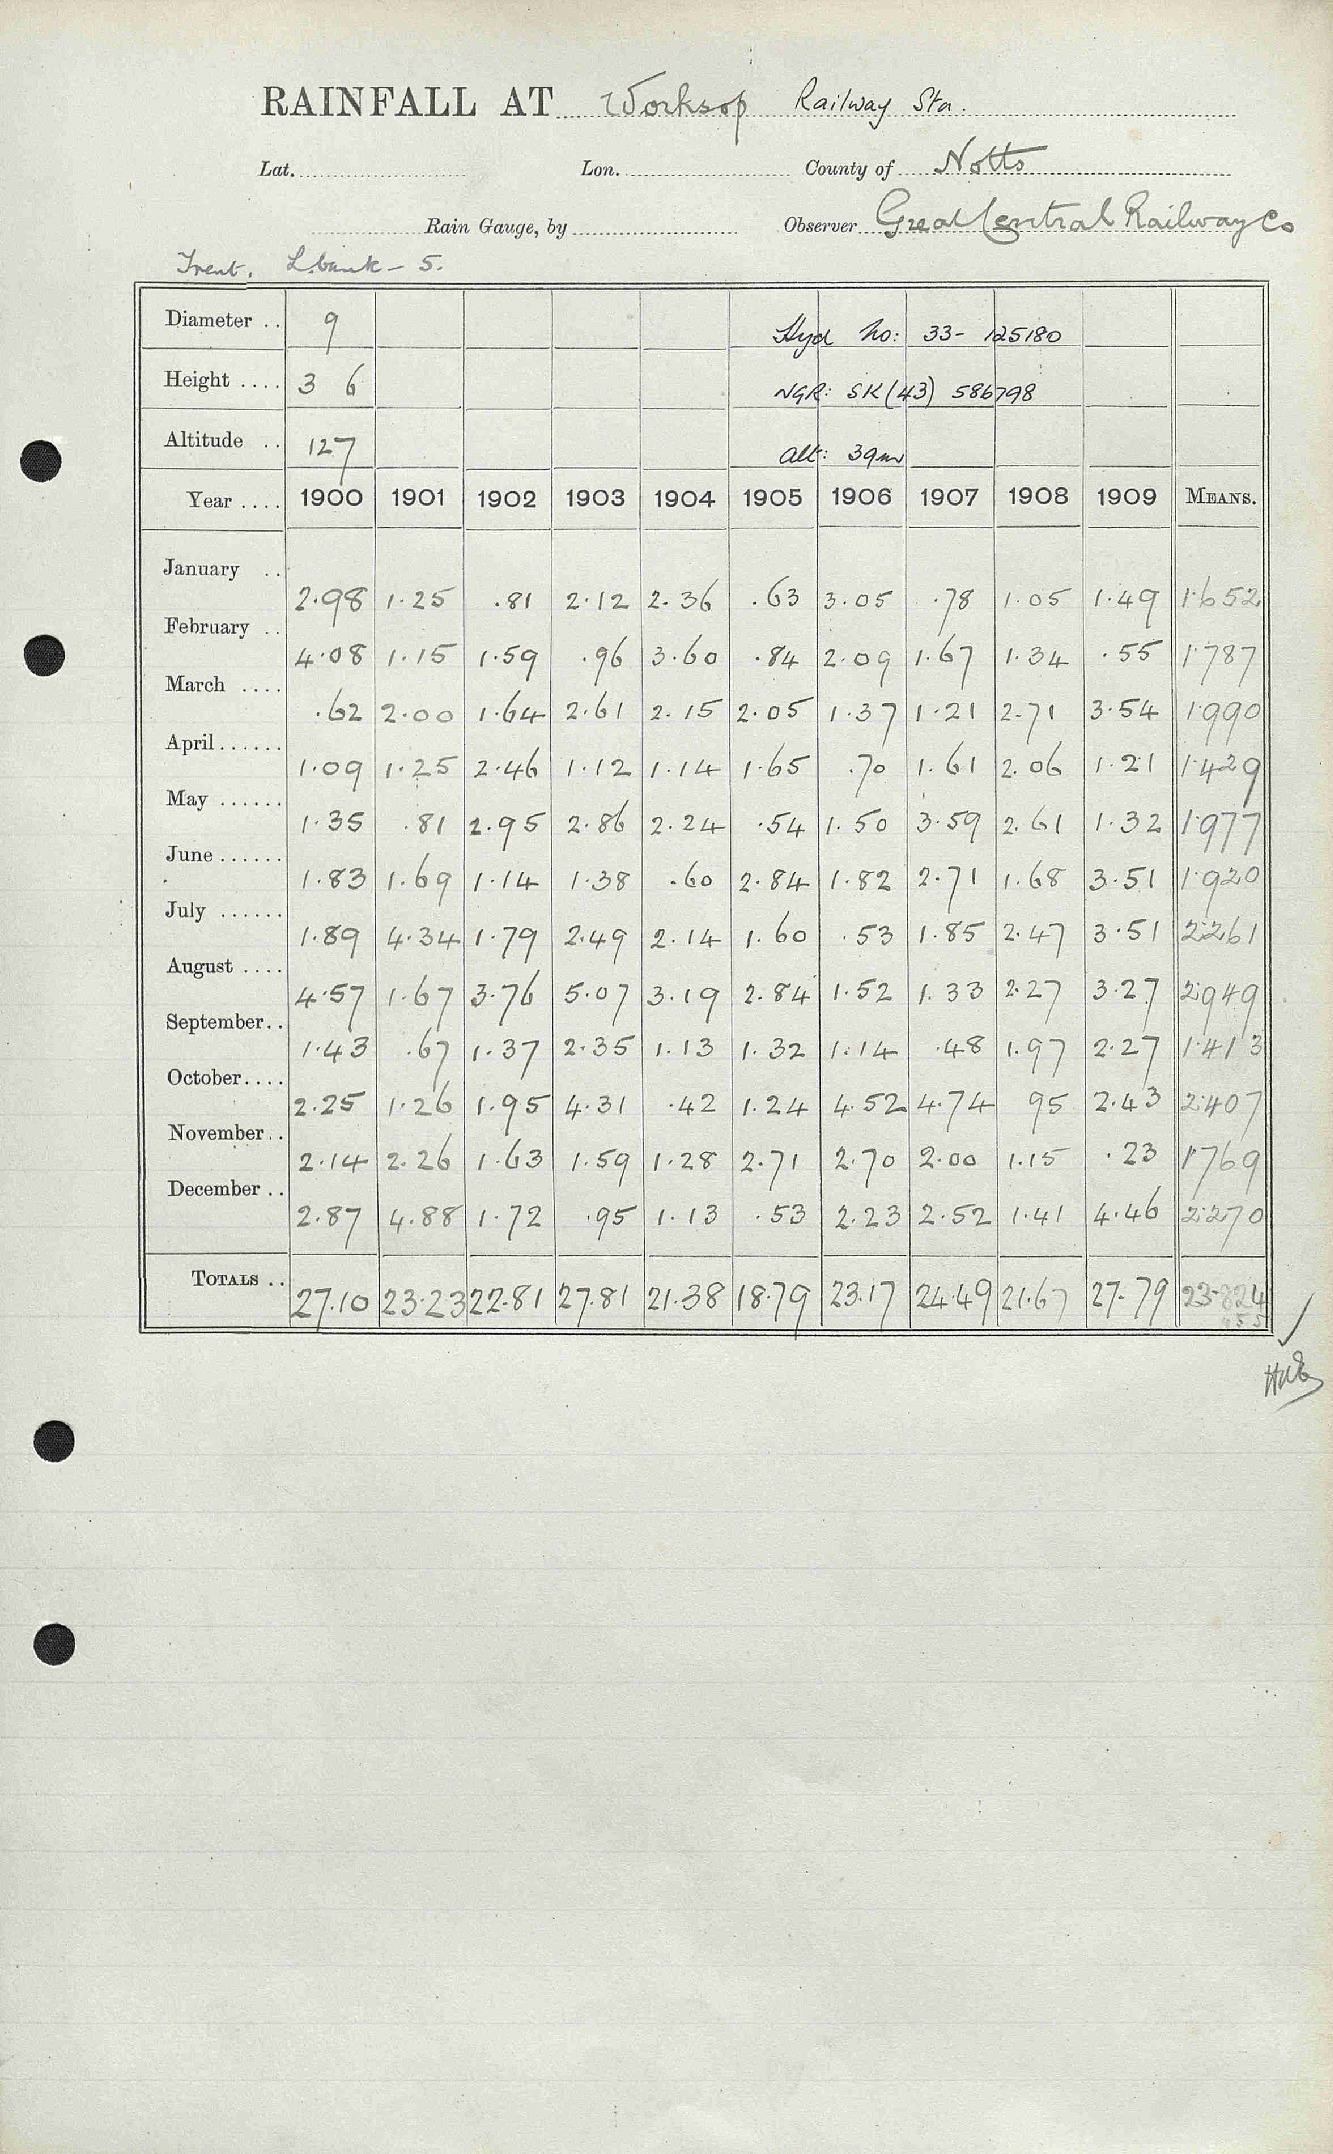 RAINFALL AT Worksop Railway Stn.
Lat. Lon. County of Notts
Rain Gauge, by Observer Great Central Railway Co
Trent. L. bank - 5.
Diameter .. 9 Hyd No: 33- 125180
Height .... 3 6 NGR: SK (43) 586798
Altitude .. 127 Alt: 39m
Year .... 1900 1901 1902 1903 1904 1905 1906 1907 1908 1909 MEANS.
January .. 2.98 1.25 .81 2.12 2.36 .63 3.05 .78 1.05 1.49 1.652
February .. 4.08 1.15 1.59 .96 3.60 .84 2.09 1.67 1.34 .55 1.787
March .... .62 2.00 1.64 2.61 2.15 2.05 1.37 1.21 2.71 3.54 1.990
April ...... 1.09 1.25 2.46 1.12 1.14 1.65 .70 1.61 2.06 1.21 1.429
May ...... 1.35 .81 2.95 2.86 2.24 .54 1.50 3.59 2.61 1.32 1.977
June ...... 1.83 1.69 1.14 1.38 .60 2.84 1.82 2.71 1.68 3.51 1.920
July ...... 1.89 4.34 1.79 2.49 2.14 1.60 .53 1.85 2.47 3.51 2.261
August .... 4.57 1.67 3.76 5.07 3.19 2.84 1.52 1.33 2.27 3.27 2.949
September.. 1.43 .67 1.37 2.35 1.13 1.32 1.14 .48 1.97 2.27 1.413
October.... 2.25 1.26 1.95 4.31 .42 1.24 4.52 4.74 95 2.43 2.407
November.. 2.14 2.26 1.63 1.59 1.28 2.71 2.70 2.00 1.15 .23 1.769
December .. 2.87 4.88 1.72 .95 1.13 .53 2.23 2.52 1.41 4.46 2.270
TOTALS .. 27.10 23.23 22.81 27.81 21.38 18.79 23.17 24.49 21.67 27.79 23.824